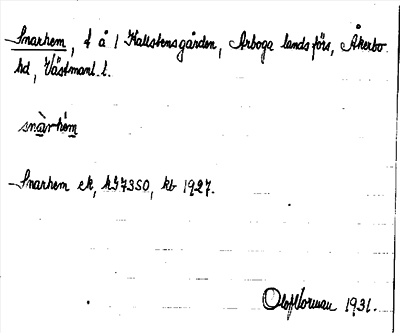 Snarhem, f å / Hallstensgården, Arboga landsförs, Åkerbo
hd, Västmanl. l.
snàrhém
Snarhem ek, hS7350, kb 1927.
Olof Norman 1931.